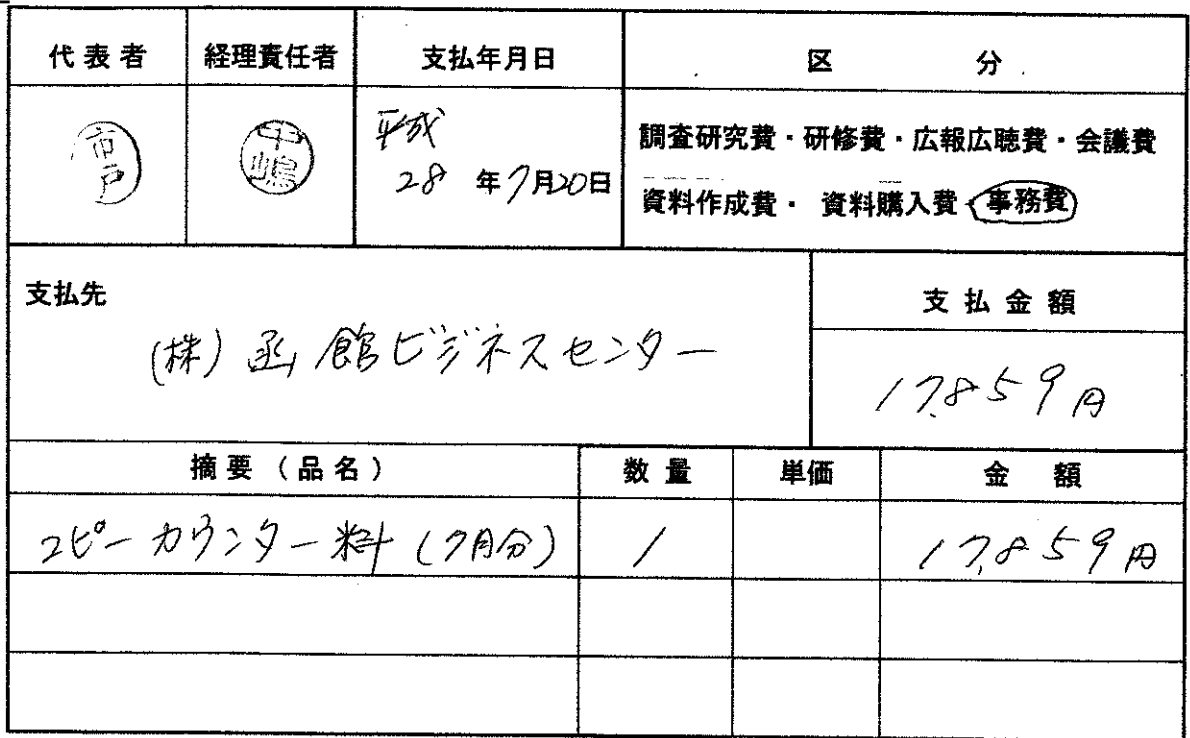 代表者 経理責任者 支払年月日 区分
市戸 中嶋 平成
28年7月20日
調査研究費・研修費・広報広聴費・会議費
資料作成費・資料購入費・事務費
支払先 支払金額
(株)函館ビジネスセンター
17,859円
摘要(品名) 数量 単価 金額
コピーカウンター料(7月分) 1 17,859円